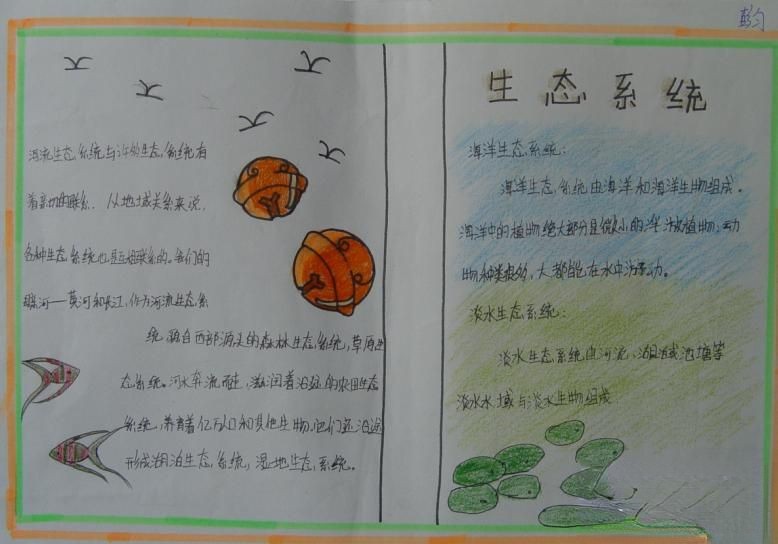 彭匀
河流生态系统与许多生态系统有
着密切的联系。从地域关系来说,
各种生态系统也是互相联系的。我们的
母亲河——黄河和长江,作为河流生态系
统,源自西部源头的森林生态系统,草原生
态系统。河水奔流而走,滋润着沿途的农田生态
系统,养育着亿万人口和其他生物,他们还沿途
形成湖泊生态系统,湿地生态系统。
生态系统
海洋生态系统:
海洋生态系统由海洋和海洋生物组成。
海洋中的植物绝大部分是微小的浮游植物,动
物种类很多,大都能在水中游动。
淡水生态系统:
淡水生态系统由河流、湖泊或池塘等
淡水水域与淡水生物组成.